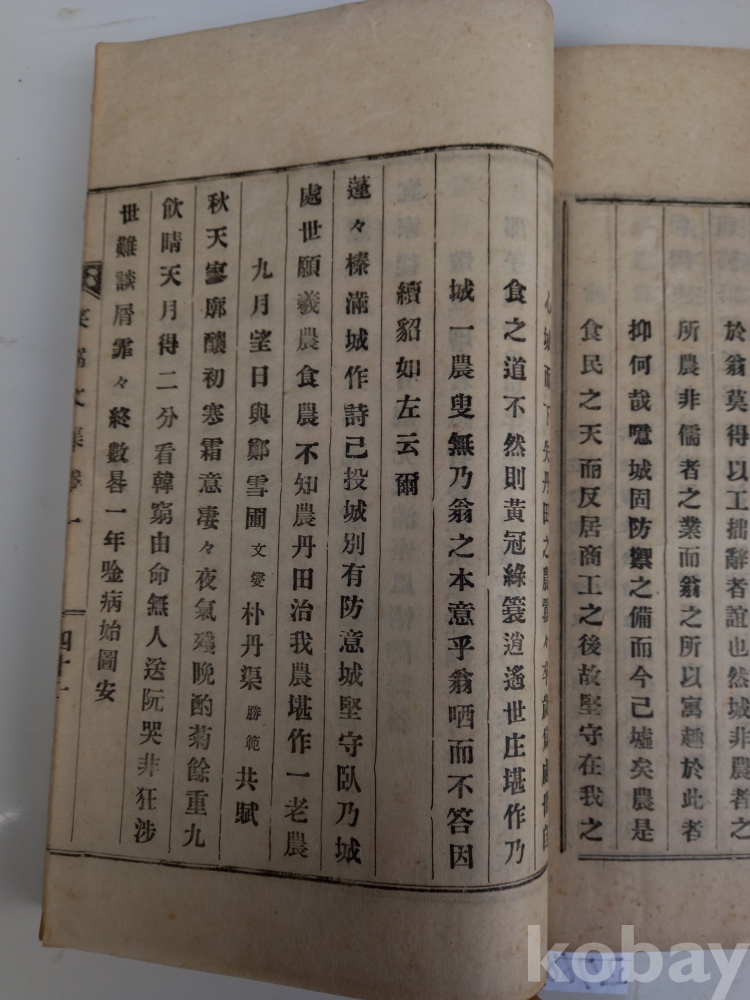 於翁莫得以工拙辭者誼也城非農者之
所農非儒者之業而翁之所以寓趣於此者
抑何哉噫城固防禦之備而今己墟矣農是
食民之天而反居商工之後故堅守在我之
食之道不然則黃冠綠簑逍遙世庄堪作乃
城一農叟無乃翁之本意乎翁哂而不答因
續貂如左云爾
蓬々榛滿城作詩己投城別有防意城堅守臥乃城
處世願羲農食農不知農丹田治我農堪作一老農
九月望日與鄭雪圃文燮朴丹渠勝範共賦
秋天寥廓釀初寒霜意凄々夜氣殘晩酌菊餘重九
飮晴天月得二分看韓窮由命無人送阮哭非狂涉
世難談屑霏々終數晷一年唫病始圖安
文集卷一
四十一
kobay